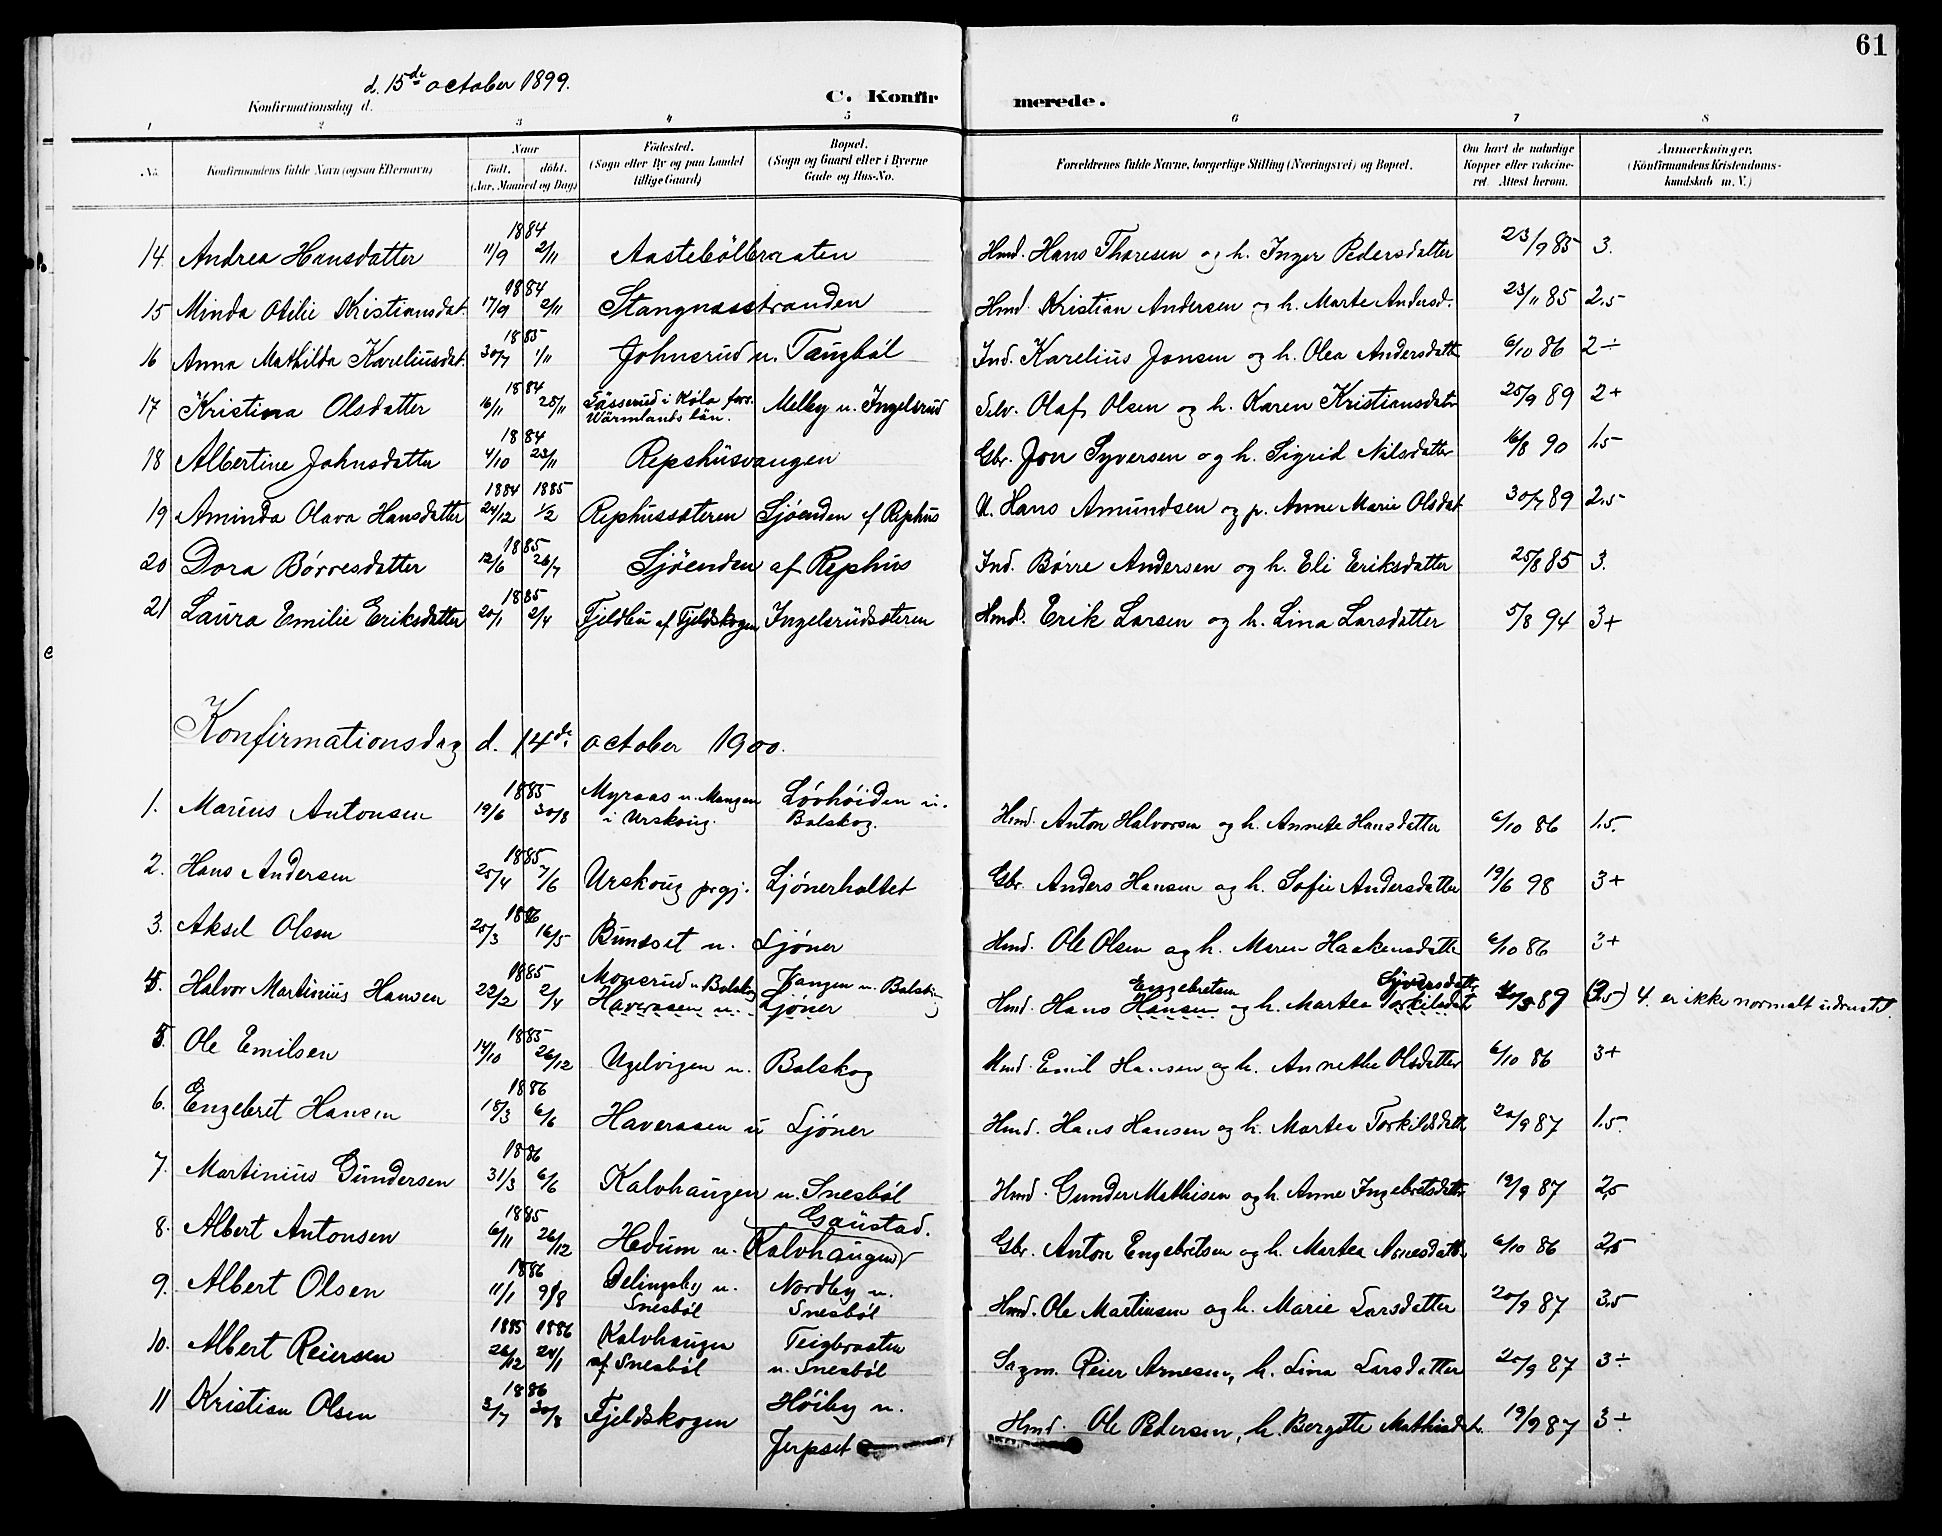 61
d. 15de october 1899.
Konfirmationsdag d. C. Konfirmerede.
1 2 3 4 5 6 7 8
No. Konfirmandens fulde Navn (ogsaa Efternavn) Naar født. døbt. (Aar, Maaned og Dag) Fødested. (Sogn eller By og paa Landet tillige Gaard) Bopæl. (Sogn og Gaard eller i Byerne Gade og Hus-No. Forældrenes fulde Navne, borgerlige Stilling (Næringsvei) og Bopæl. Om havt de naturlige Kopper eller vaccineret. Attest herom. Anmærkninger. (Konfirmandens Kristendomskundskab m. V.)
14. Andrea Hansdatter 1884 11/9 2/11 Aastebölbraaten Hmd. Hans Thoresen og h. Inger Pedersdatter 23/9 85 3.
15 Minda Otilie Kristiansdat. 1884 17/9 2/11 Stangnasstranden Hmd. Kristian Andersen og h. Marte Andersd. 23/11 85 2.5
16 Anna Mathilda Kareliusdat. 1885 30/7 1/11 Johnsrud u. Taugböl Ind. Karelius Jonsen og h. Olea Andersdatt. 6/10 86 2÷
17 Kristina Olsdatter 1884 16/11 25/11 Lässerud i Köla förs. Wärmlands län. Melby u. Ingelsrud Selv. Olaf Olsen og h. Karen Kristiansdatr 25/9 89 2+
18 Albertine Johnsdatter 1884 4/10 23/11 Repshusvangen Gbr. Jon Syversen og h. Sigrid Nilsdatter 16/8 90 1.5
19 Aminda Olava Hansdatter 1884 1885 24/12 1/2 Rephussæteren Sjöenden af Rephus U. Hans Amundsen og p. Anne Marie Olsdat 30/7 89 2.5
20 Dora Børresdatter 1885 12/6 26/7 Sjöenden af Rephus Ind. Børre Andersen og h. Eli Eriksdatter 25/8 85 3.
21 Laura Emilie Eriksdatter 1885 20/1 2/4 Fjeldbu af Fjeldskogen Ingelsrudsæteren Hmd. Erik Larsen og h. Lina Larsdatter 5/8 94 3+
Konfirmationsdag d. 14de october 1900.
1. Marius Antonsen 1885 19/6 30/8 Myraas u. Mangen i Urskoug. Lövhöiden u. Bolskog. Hmd. Anton Halvorsen og h. Annete Hansdatter 6/10 86 1.5.
2. Hans Andersen 1885 25/4 7/6 Urskoug prgj. Ljönerholtet Gbr. Anders Hansen og h. Sofie Andersdatter 19/6 98 3+
3. Aksel Olsen 1886 25/3 16/5 Bunæset u. Ljöner Hmd. Ole Olsen og h. Maren Haakensdatt. 6/10 86 3+
4. Halvor Martinius Hansen 1885 22/2 2/4 Monsrud u. Bolskog Haveraaen u. Vangen u. Bolskog Ljöner Hmd. Hans Hansen Engebretsen og h. Martea Torkilsdat Syversdatt. 89 (2.5) 4. er ikke normalt udrustet.
5. Ole Emilsen 1885 14/10 26/12 Ugelvigen u. Bolskog Hmd. Emil Hansen og h. Annethe Olsdatter 6/10 86 3+
6. Engebret Hansen 1886 18/3 6/6 Haveraaen u Ljöner Hmd. Hans Hansen og h. Martea Torkildsdatt. 20/9 87 1.5.
7. Martinius Gundersen 1886 31/3 6/6 Kalvhaugen u. Snesböl Hmd. Gunder Mathisen og h. Anne Ingebretsdatt. 19/9 87 2.5
8. Albert Antonsen 1885 6/11 26/12 Hedum u. Gaustad. (Kalvhaugen) Gbr. Anton Engebretsen og h. Martea Arnesdatt. 6/10 86 2.5
9. Albert Olsen 1886 11/1 9/8 Delingsby u. Snesböl Nordby u. Snesböl Hmd. Ole Martinsen og h. Marie Larsdatter 20/9 87 3.5
10. Albert Reiersen 1885 1886 26/12 24/1 Kalvhaugen af Snesböl Teigbraaten u. Snesböl Sagm. Reier Arnesen, h. Lina Larsdatter 20/9 87 3÷
11 Kristian Olsen 1886 3/7 30/8 Fjeldskogen Höiby u. Jerpset Hmd. Ole Pedersen, h. Bergitte Mathisdat. 19/9 87 3÷